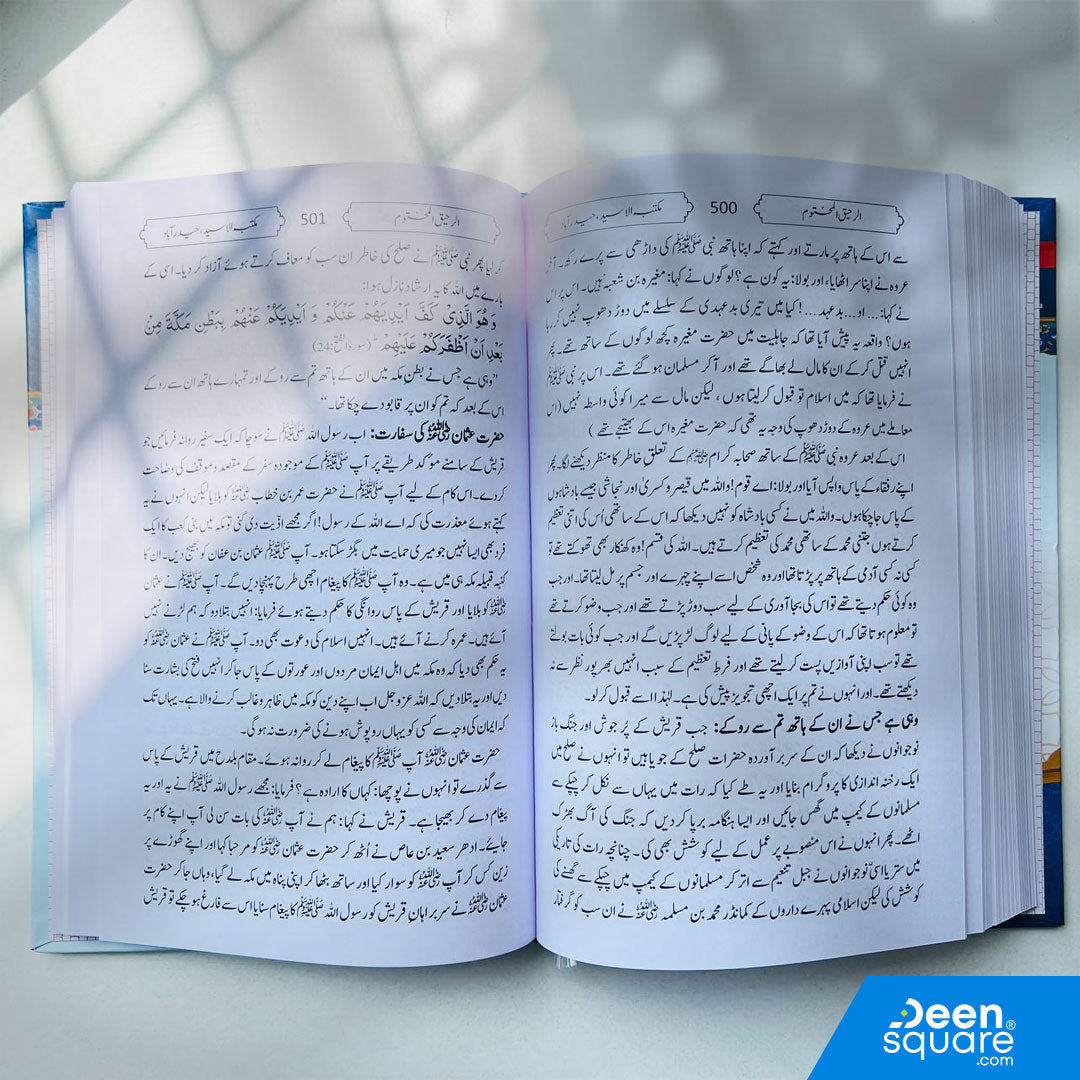 الرحیق المختوم 500 مکتبہ الاسید، حیدرآباد
سے اس کے ہاتھ پر مارتے اور کہتے کہ اپنا ہاتھ نبی ﷺ کی داڑھی سے پرے رکھ۔ آخر
عروہ نے اپنا سر اٹھایا، اور بولا: یہ کون ہے؟ لوگوں نے کہا: مغیرہ بن شعبہ ہیں۔ اس پر اس
نے کہا: ... او... بدعہد ...! کیا میں تیری بدعہدی کے سلسلے میں دوڑ دھوپ نہیں کر رہا
ہوں؟ واقعہ یہ پیش آیا تھا کہ جاہلیت میں حضرت مغیرہ کچھ لوگوں کے ساتھ تھے۔ پھر
انہیں قتل کرکے ان کا مال لے بھاگے تھے اور آکر مسلمان ہوگئے تھے۔ اس پر نبی ﷺ
نے فرمایا تھا کہ میں اسلام تو قبول کرلیتا ہوں، لیکن مال سے میرا کوئی واسطہ نہیں (اس
معاملے میں عروہ کے دوڑ دھوپ کی وجہ یہ تھی کہ حضرت مغیرہ اس کے بھتیجے تھے)
اس کے بعد عروہ نبی ﷺ کے ساتھ صحابہ کرام رضی اللہ عنہم کے تعلق خاطر کا منظر دیکھنے لگا۔ پھر
اپنے رفقاء کے پاس واپس آیا اور بولا: اے قوم! واللہ میں قیصر و کسریٰ اور نجاشی جیسے بادشاہوں
کے پاس جاچکا ہوں۔ واللہ میں نے کسی بادشاہ کو نہیں دیکھا کہ اس کے ساتھی اُس کی اتنی تعظیم
کرتے ہوں جتنی محمد کے ساتھی محمد کی تعظیم کرتے ہیں۔ اللہ کی قسم! وہ کھنکار بھی تھوکتے تھے تو
کسی نہ کسی آدمی کے ہاتھ پر پڑتا تھا اور وہ شخص اسے اپنے چہرے اور جسم پر مل لیتا تھا۔ اور جب
وہ کوئی حکم دیتے تھے تو اس کی بجا آوری کے لیے سب دوڑ پڑتے تھے اور جب وضو کرتے تھے
تو معلوم ہوتا تھا کہ اس کے وضو کے پانی کے لیے لوگ لڑ پڑیں گے اور جب کوئی بات بولتے
تھے تو سب اپنی آوازیں پست کرلیتے تھے اور فرط تعظیم کے سبب انہیں بھرپور نظر سے نہ
دیکھتے تھے۔ اور انہوں نے تم پر ایک اچھی تجویز پیش کی ہے۔ لہٰذا اسے قبول کرلو۔
وہی ہے جس نے ان کے ہاتھ تم سے روکے: جب قریش کے پُر جوش اور جنگ باز
نوجوانوں نے دیکھا کہ ان کے سر برآوردہ حضرات صلح کے جویا ہیں تو انہوں نے صلح میں
ایک رخنہ اندازی کا پروگرام بنایا اور یہ طے کیا کہ رات میں یہاں سے نکل کر چپکے سے
مسلمانوں کے کیمپ میں گھس جائیں اور ایسا ہنگامہ برپا کردیں کہ جنگ کی آگ بھڑک
اٹھے۔ پھر انہوں نے اس منصوبے پر عمل کے لیے کوشش بھی کی۔ چنانچہ رات کی تاریکی
میں ستر یا اسّی نوجوانوں نے جبل تنعیم سے اتر کر مسلمانوں کے کیمپ میں چپکے سے گھسنے کی
کوشش کی لیکن اسلامی پہرے داروں کے کمانڈر محمد بن مسلمہ رضی اللہ عنہ نے ان سب کو گرفتار
الرحیق المختوم 501 مکتبہ الاسید، حیدرآباد
کرلیا پھر نبی ﷺ نے صلح کی خاطر ان سب کو معاف کرتے ہوئے آزاد کردیا۔ اسی کے
بارے میں اللہ کا یہ ارشاد نازل ہوا:
وَهُوَ الَّذِیْ كَفَّ اَیْدِیَهُمْ عَنْكُمْ وَ اَیْدِیَكُمْ عَنْهُمْ بِبَطْنِ مَكَّةَ مِنْ
بَعْدِ اَنْ اَظْفَرَكُمْ عَلَیْهِمْ (سورہ الفتح:24)
”وہی ہے جس نے بطن مکہ میں ان کے ہاتھ تم سے روکے اور تمہارے ہاتھ ان سے روکے
اس کے بعد کہ تم کو ان پر قابو دے چکا تھا۔“
حضرت عثمان رضی اللہ عنہ کی سفارت: اب رسول اللہ ﷺ نے سوچا کہ ایک سفیر روانہ فرمائیں جو
قریش کے سامنے موکد طریقے پر آپ ﷺ کے موجودہ سفر کے مقصد و موقف کی وضاحت
کردے۔ اس کام کے لیے آپ ﷺ نے حضرت عمر بن خطاب رضی اللہ عنہ کو بلایا لیکن انہوں نے یہ
کہتے ہوئے معذرت کی کہ اے اللہ کے رسول! اگر مجھے اذیت دی گئی تو مکہ میں بنی کعب کا ایک
فرد بھی ایسا نہیں جو میری حمایت میں بگڑ سکتا ہو۔ آپ ﷺ عثمان بن عفان کو بھیج دیں۔ ان کا
کنبہ قبیلہ مکہ ہی میں ہے۔ وہ آپ ﷺ کا پیغام اچھی طرح پہنچادیں گے۔ آپ ﷺ نے عثمان
رضی اللہ عنہ کو بلایا اور قریش کے پاس روانگی کا حکم دیتے ہوئے فرمایا: انہیں بتلا دو کہ ہم لڑنے نہیں
آئے ہیں۔ عمرہ کرنے آئے ہیں۔ انہیں اسلام کی دعوت بھی دو۔ آپ ﷺ نے عثمان رضی اللہ عنہ کو
یہ حکم بھی دیا کہ وہ مکہ میں اہل ایمان مردوں اور عورتوں کے پاس جاکر انہیں فتح کی بشارت سنا
دیں اور یہ بتلا دیں کہ اللہ عزوجل اب اپنے دین کو مکہ میں ظاہر و غالب کرنے والا ہے۔ یہاں تک
کہ ایمان کی وجہ سے کسی کو یہاں روپوش ہونے کی ضرورت نہ ہوگی۔
حضرت عثمان رضی اللہ عنہ آپ ﷺ کا پیغام لے کر روانہ ہوئے۔ مقام بلدح میں قریش کے پاس
سے گذرے تو انہوں نے پوچھا: کہاں کا ارادہ ہے؟ فرمایا: مجھے رسول اللہ ﷺ نے یہ اور یہ
پیغام دے کر بھیجا ہے۔ قریش نے کہا: ہم نے آپ رضی اللہ عنہ کی بات سن لی آپ اپنے کام پر
جایئے۔ ادھر سعید بن عاص نے اُٹھ کر حضرت عثمان رضی اللہ عنہ کو مرحبا کہا اور اپنے گھوڑے پر
زین کس کر آپ رضی اللہ عنہ کو سوار کیا اور ساتھ بٹھا کر اپنی پناہ میں مکہ لے گیا، وہاں جاکر حضرت
عثمان رضی اللہ عنہ نے سربراہان قریش کو رسول اللہ ﷺ کا پیغام سنایا اس سے فارغ ہوچکے تو قریش
Deen
square®
.com